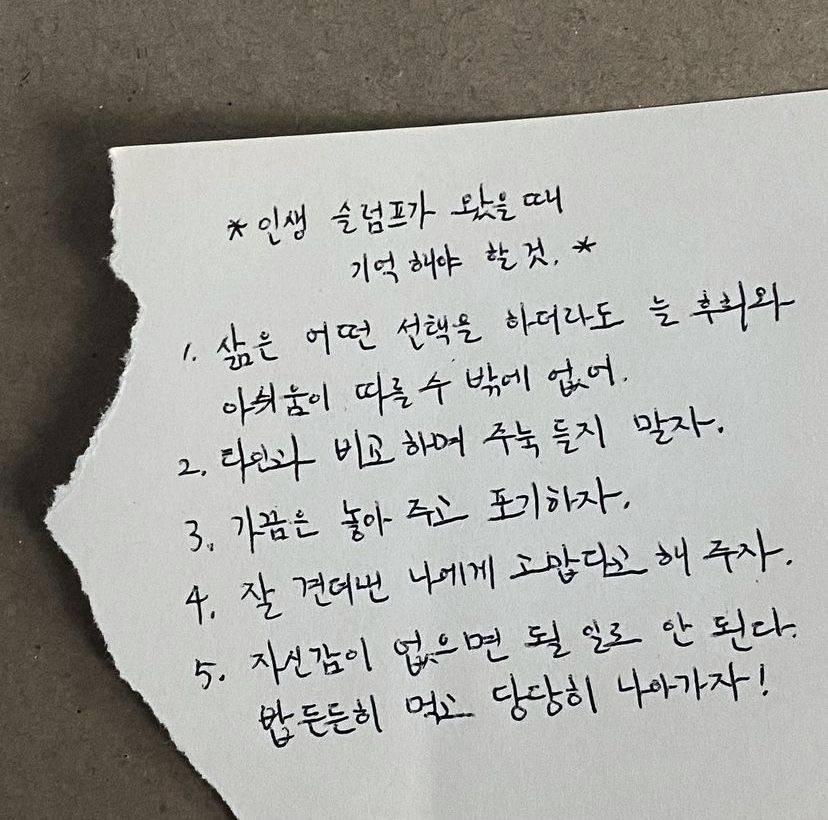 *인생 슬럼프가 왔을 때
기억해야 할 것.*
1. 삶은 어떤 선택을 하더라도 늘 후회와
아쉬움이 따를 수 밖에 없어.
2. 타인과 비교하며 주눅 들지 말자.
3. 가끔은 놓아 주고 포기하자.
4. 잘 견뎌낸 나에게 고맙다고 해 주자.
5. 자신감이 없으면 될 일도 안 된다.
밥 든든히 먹고 당당히 나아가자!